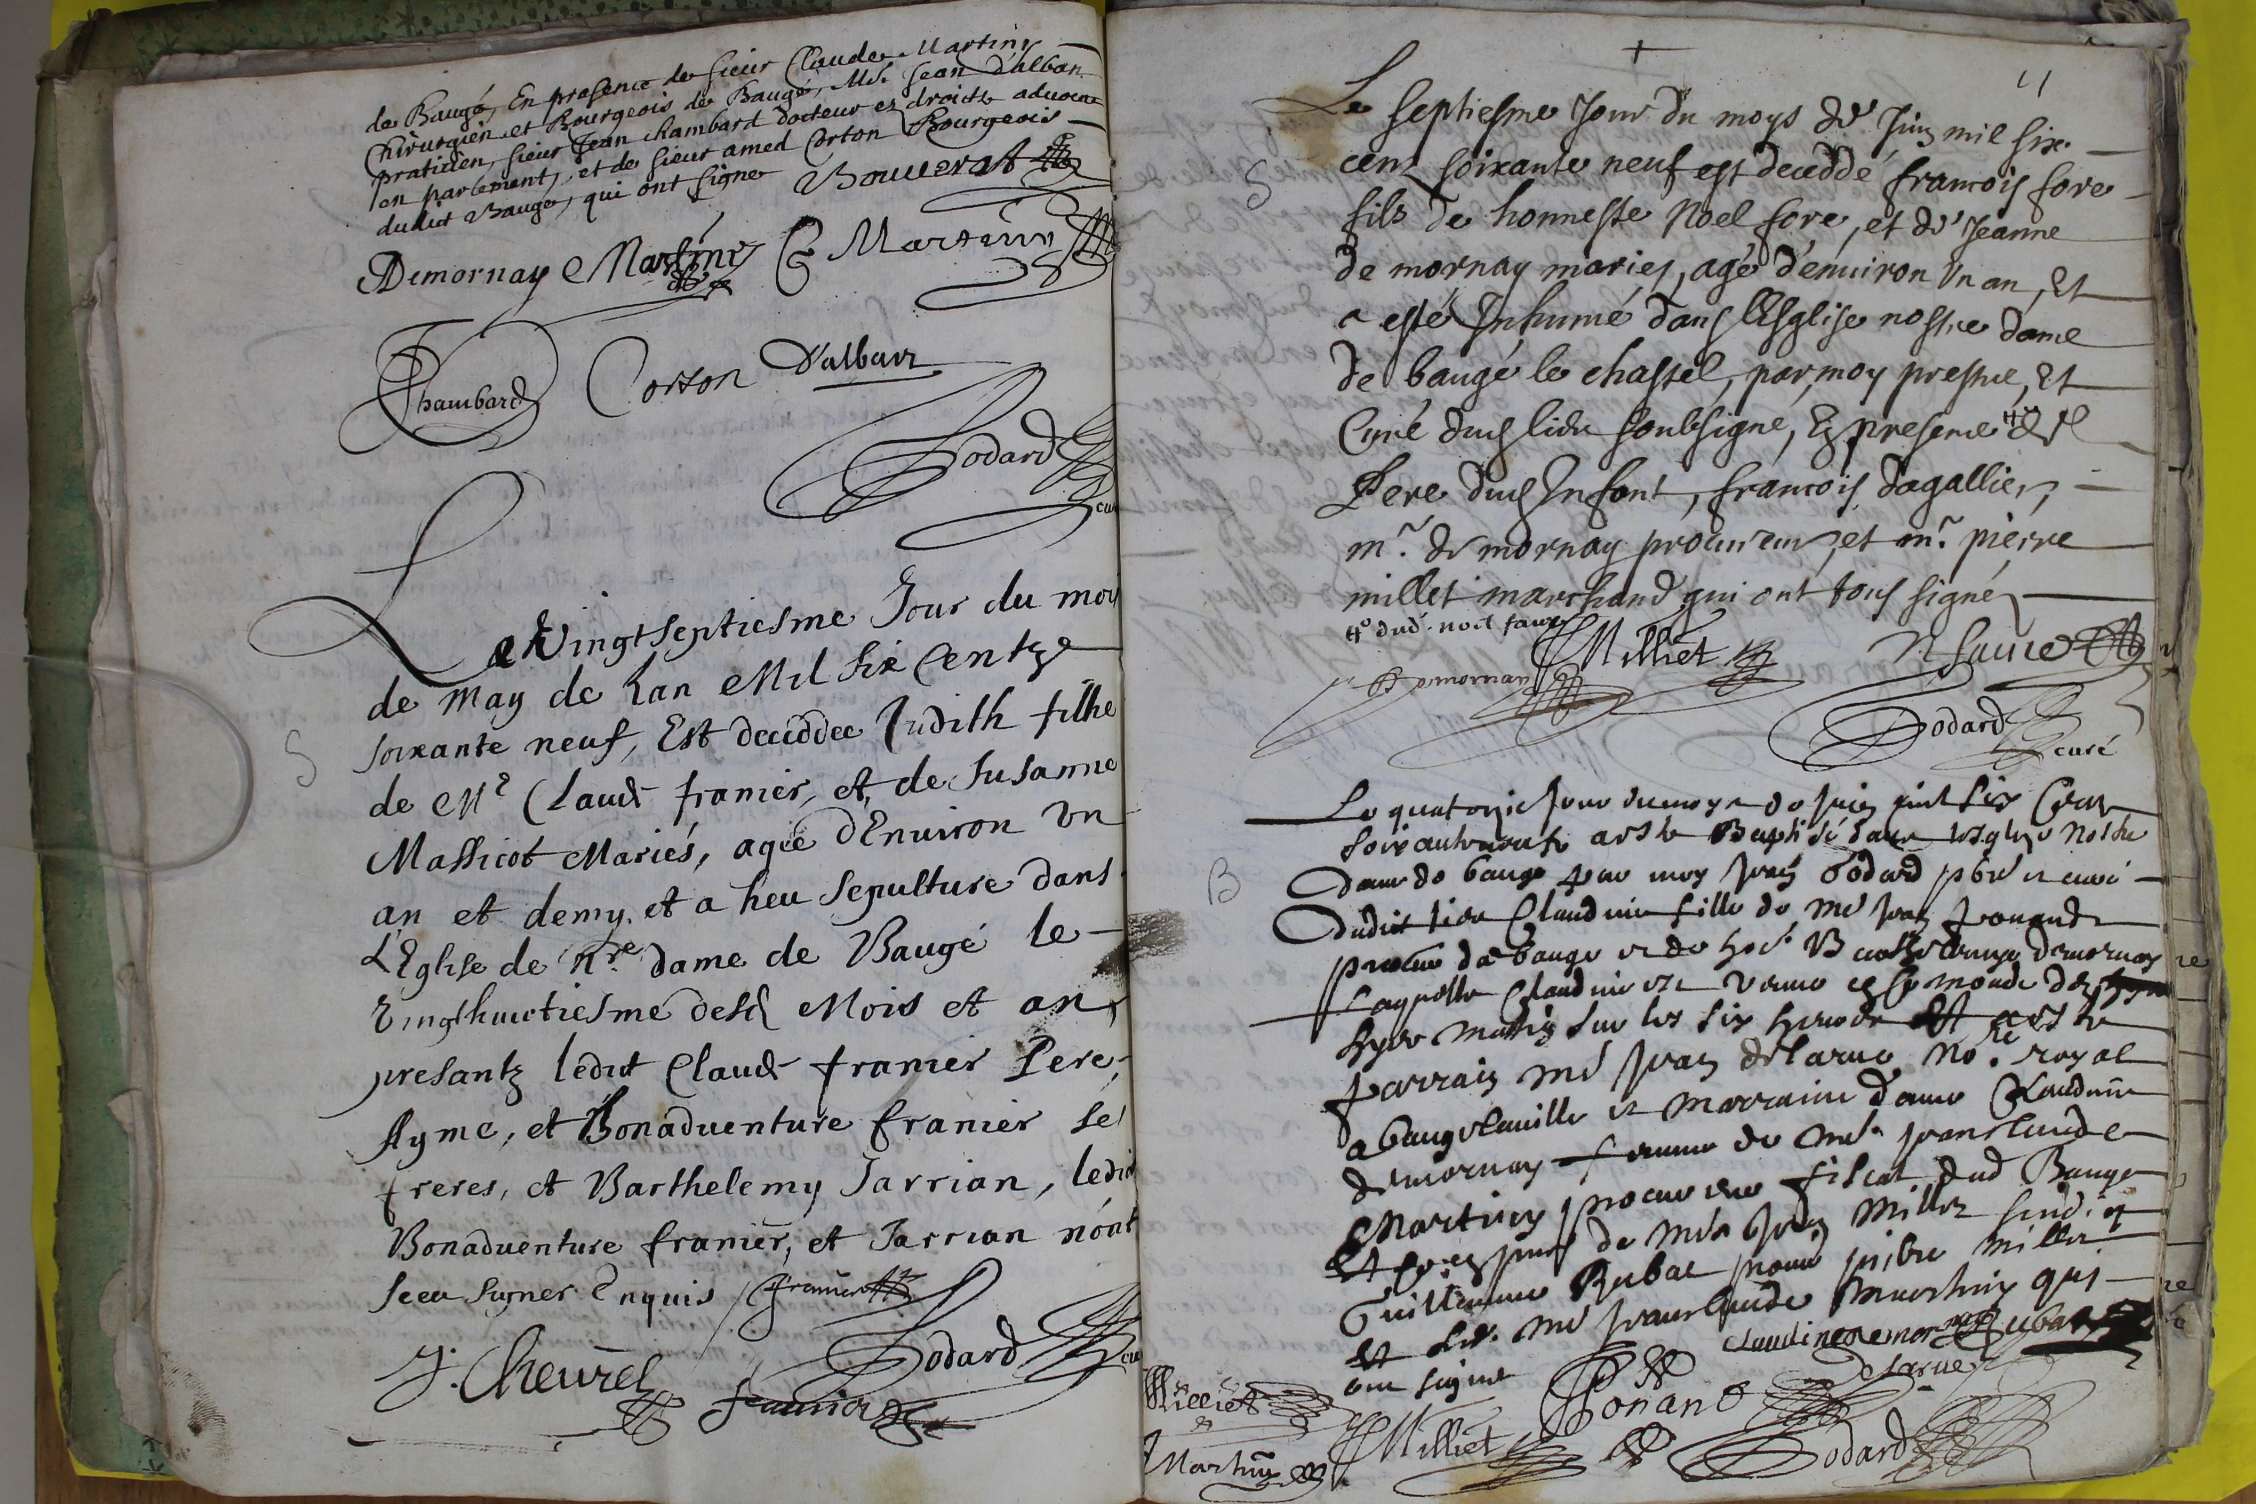 de Baugé, En presence de sieur Claude Martin
Chirurgien et Bourgeois de Baugé, Me. Jean d'alban
praticien, sieur Jean Chambard docteur ez droictz advocat
en parlement, et de sieur amed Corton Bourgeois
dudict Baugé, qui ont signe Bouverat
Demornay Martine C Martin
Chambard Corton D'alban
Godard
cu
Le Vingt septiesme Jour du mois
de may de Lan Mil six Centz
soixante neuf, Est deceddee Judith filhe
S
de Me Claude franier, et de Susanne
Massicot Mariés, agée dEnviron un
an et demy, et a heu sepulture dans
L'Eglise de Nre dame de Baugé le
vingthuictiesme desd Mois et an
presantz ledict Claude franier Pere,
Ayme, et Bonaduenture franier se
freres, et Barthelemy Jarrian, ledict
Bonaduenture franier, et Jarrian nont
sceu signer Enquis franier
Godard
J. Cheurel franier
11
Le septiesme Jour du moys de Juin mil six
cent soixante neuf est deceddé francois fore
S
fils de honneste Noel fore, et de Jeanne
de mornay mariez, agé d'enuiron Un an, Et
a esté Inhumé dans l'Esglise nostre dame
de baugé le chastel, par moy prestre, Et
Curé dud lieu soubsigné, En presence # de
Pere dud Enfant, francois dagallier,
mr. de mornay procureur, et mr. pierre
millet marchand qui ont tous signé
# dud. noel faure
Milliet N faure
Demornay
Godard
curé
Le quatorzie Jour du moys de Juin mil six Cent
soixanteneufz a esté Baptisé dans lesglize Nostre
B
Dame de bauge par moy Jean Godard pbre et curé
Dudict lieu Claudine fille de Me Jean ponand
de bauge et de demornay
Laquelle Claudine est venue ce monde
matin sur les six heures Et a esté
parrain me Jean delarue nore. royal
a baugelauille et marraine dame Claudine
demornay femme de me. Jeanclaude
Martin procureur fiscal dud Bauge
de Me Jean Millet
Guillaume Rubat pierre millet
Et me Jeanclaude Martin qui
ont signe Claudine demornay Rubat
Delarue
Milliet Ponand
Milliet Godard
Martin